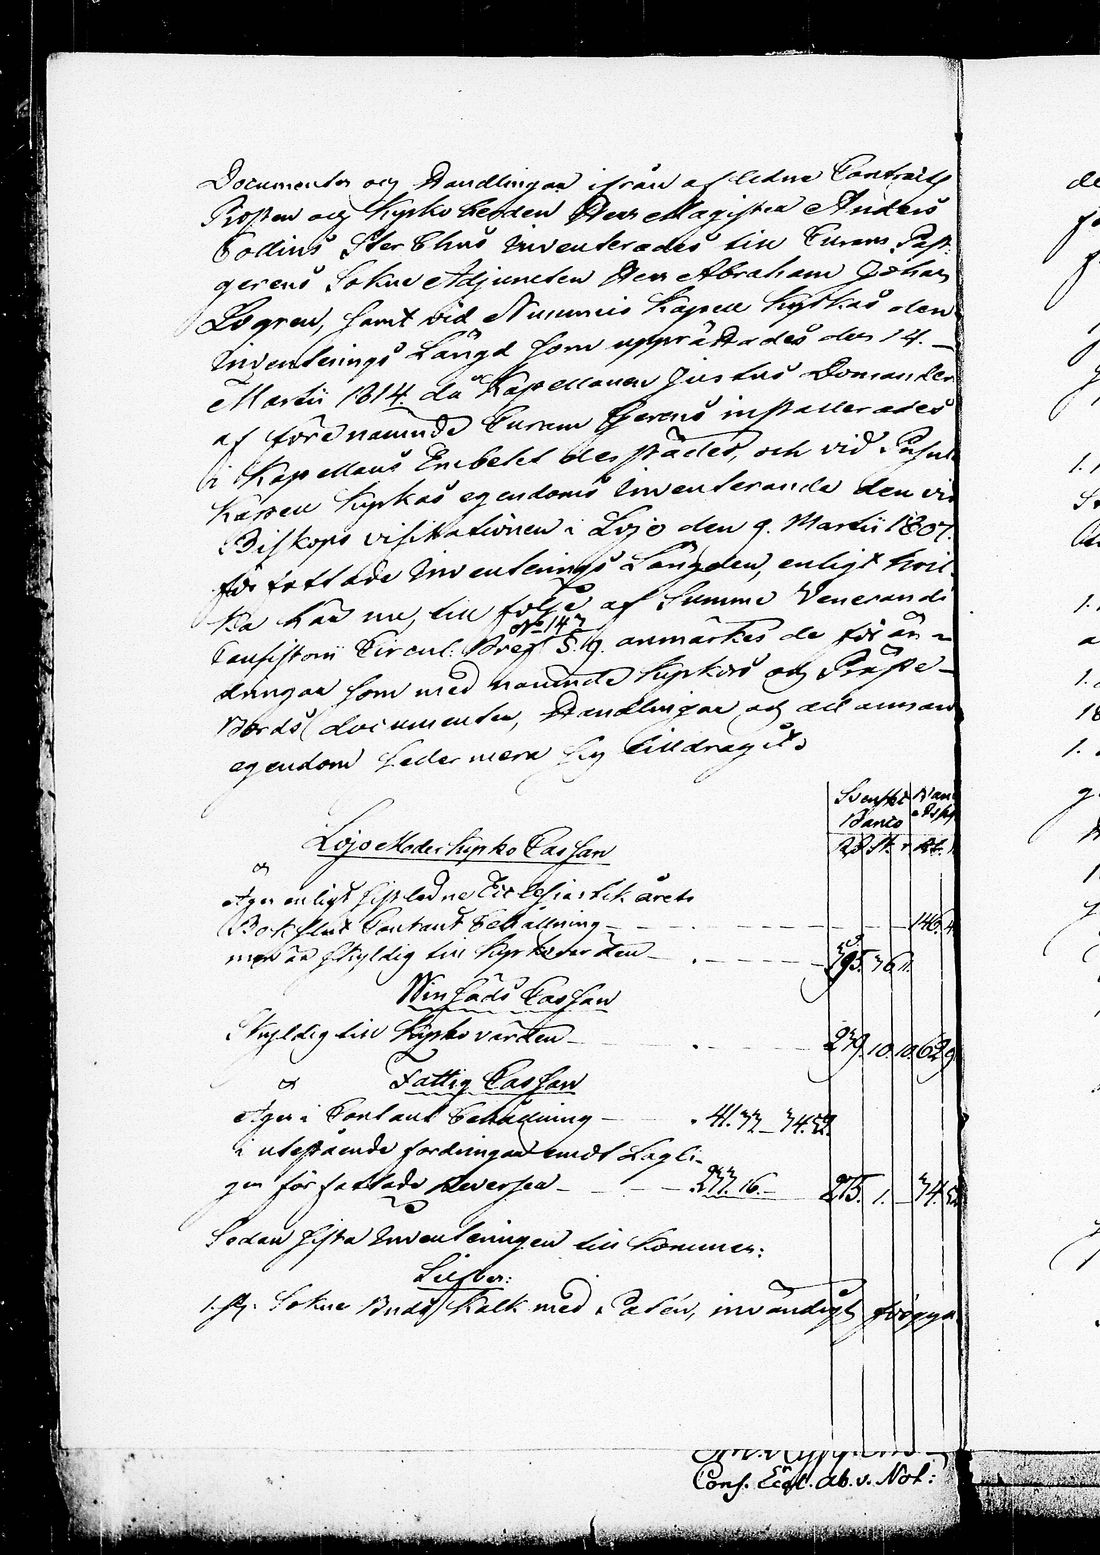 Documenter och Handlingar ifrån aflidne Contracts
Prosten och Kyrko herden Herr Magister Anders
Collins Sterbhus inventerades till Curam Past:
gerens Sokne Adjuncten Herr Abraham Johan
Logren, samt vid Nummis Kapell Kyrkas den
Inventerings Längd som upprättades den 14.
Martii 1814. då Kapellanen Justus Domander
af förenämnde Curam Gerens installerades
i Kapellans Embetet derstädes, och vid Pusula
Kapell Kyrkas egendoms Inventerande den vid
Biskops visitationen i Lojo den 9. Martii 1807.
författade Inventerings Längden, enligt hvil-
ka här nu, till följe af Summe Venerandi
Consistorii Circul: Bref No 147 §. 9. anmärkes de förän-
dringar som med nämnde Kyrkors och Präste-
Bords documenter, Handlingar och all annan
egendom sedermera sig tilldragit.
Svenskt
Banco
Lojo Moder Kyrko Cassan
Äger enligt sistledne Ecclesiastik årets
Bokslut Contant Behållning 146. 4
men är skyldig till Kyrkovärden 395. 36. 11.
Winsåds Cassan
Skyldig till Kyrkovärden 239. 10. 10. 62. 9
Fattig Cassan
Äger i Contant Behållning 41. 33 34. 52.
i utestående fordringar emot Lagli-
gen författade Reverser 233. 16. 275. 1. 34. 52
Sedan sista Inventeringen till kommer:
Silfver:
1. st. Sokne Buds Kalk med Patén, invändigt förgyld
Cons. Eccl. Ab. v. Not: